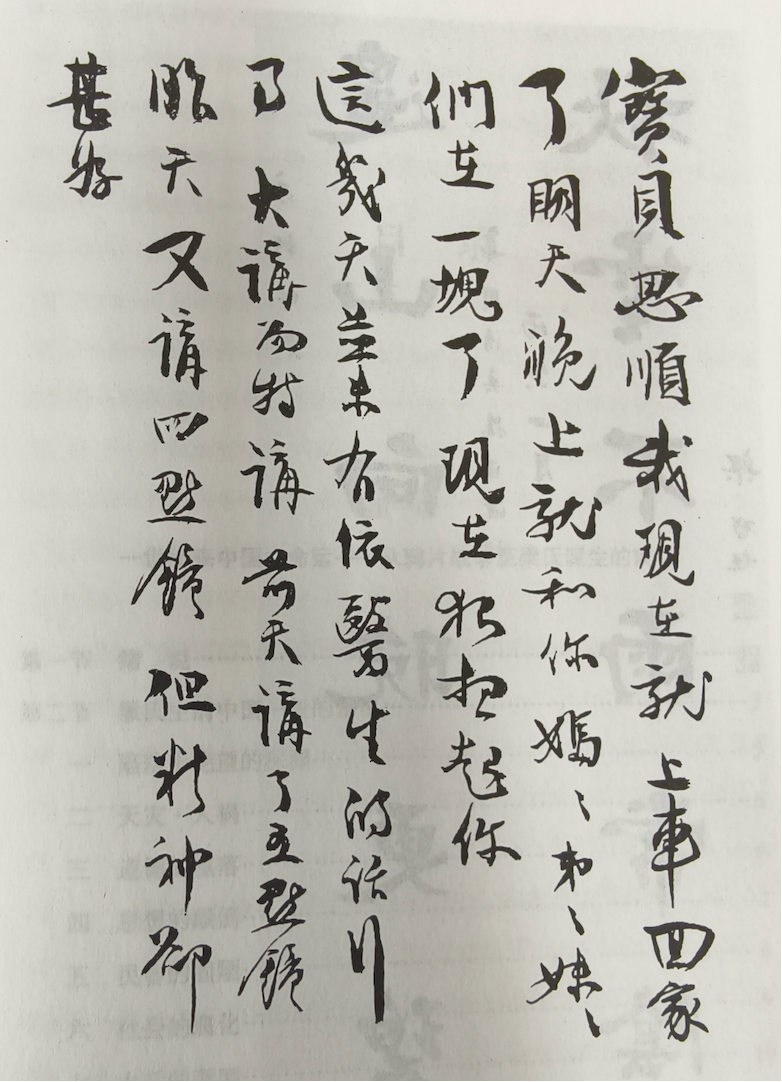 寶貝思順我現在就上車回家
了明天晚上就和你媽〻弟〻妹〻
們在一塊了現在狠想起你
這幾天並未有依醫生的話行
事大講而特講前天講了五點鐘
昨天又講四點鐘但精神卻
甚好